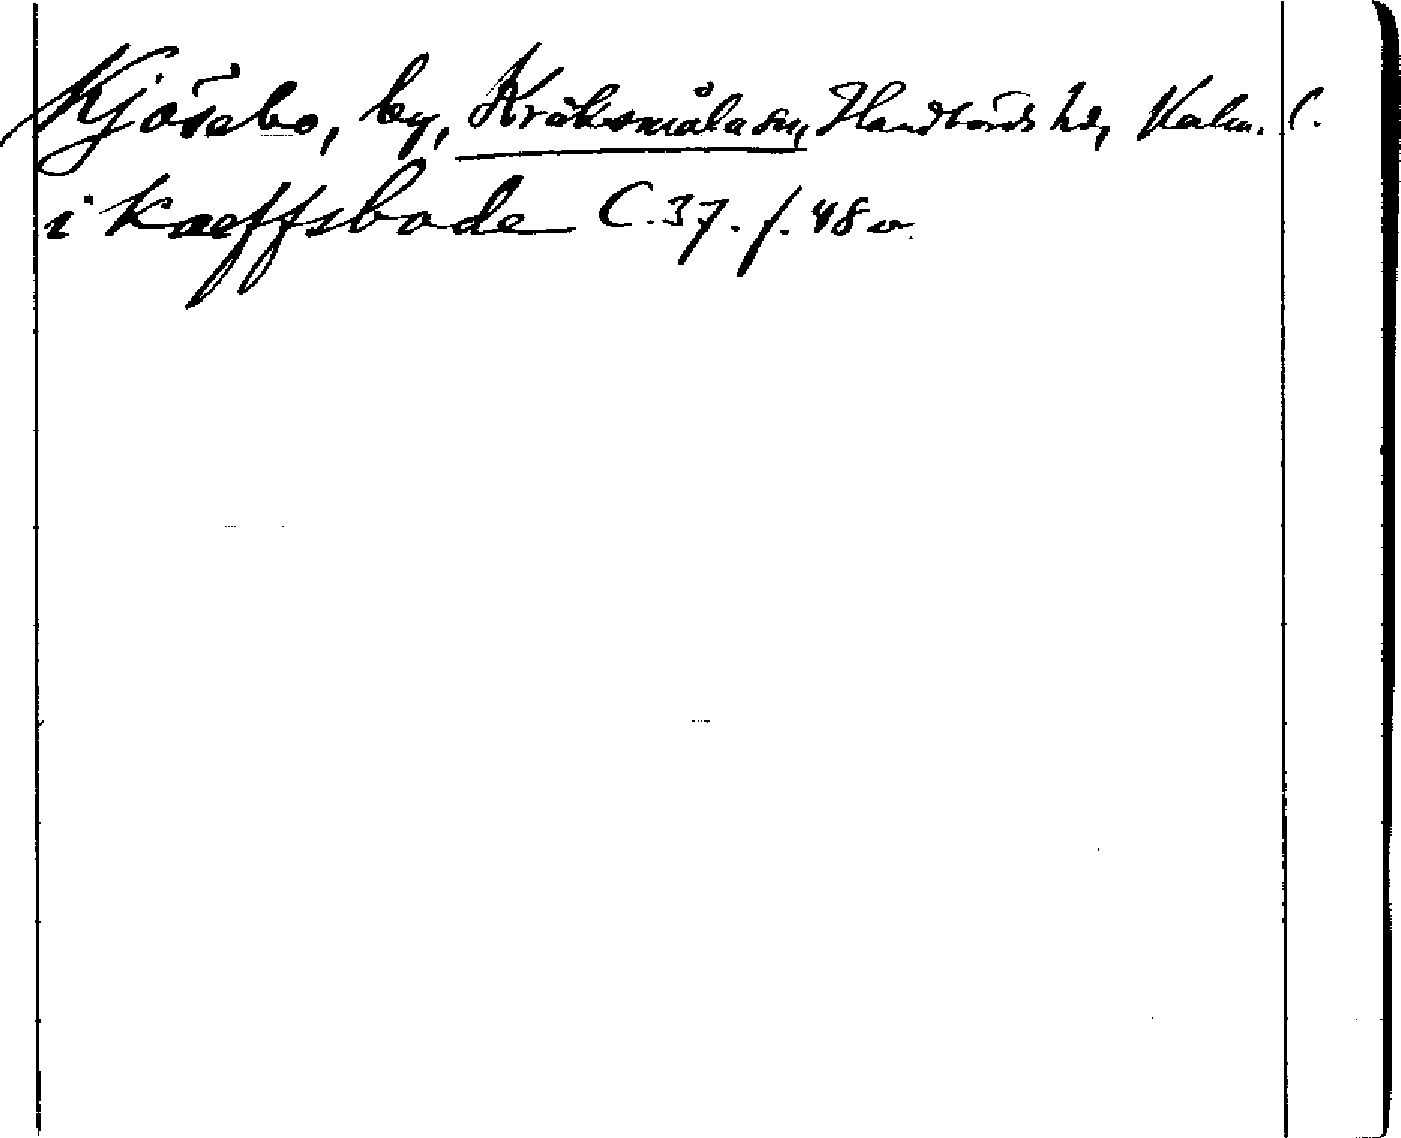 Kjösebo, by, Kråksmåla sn, Handbörds hd, Kalm. l.
i kaeffsbode C. 37. f. 48 v.